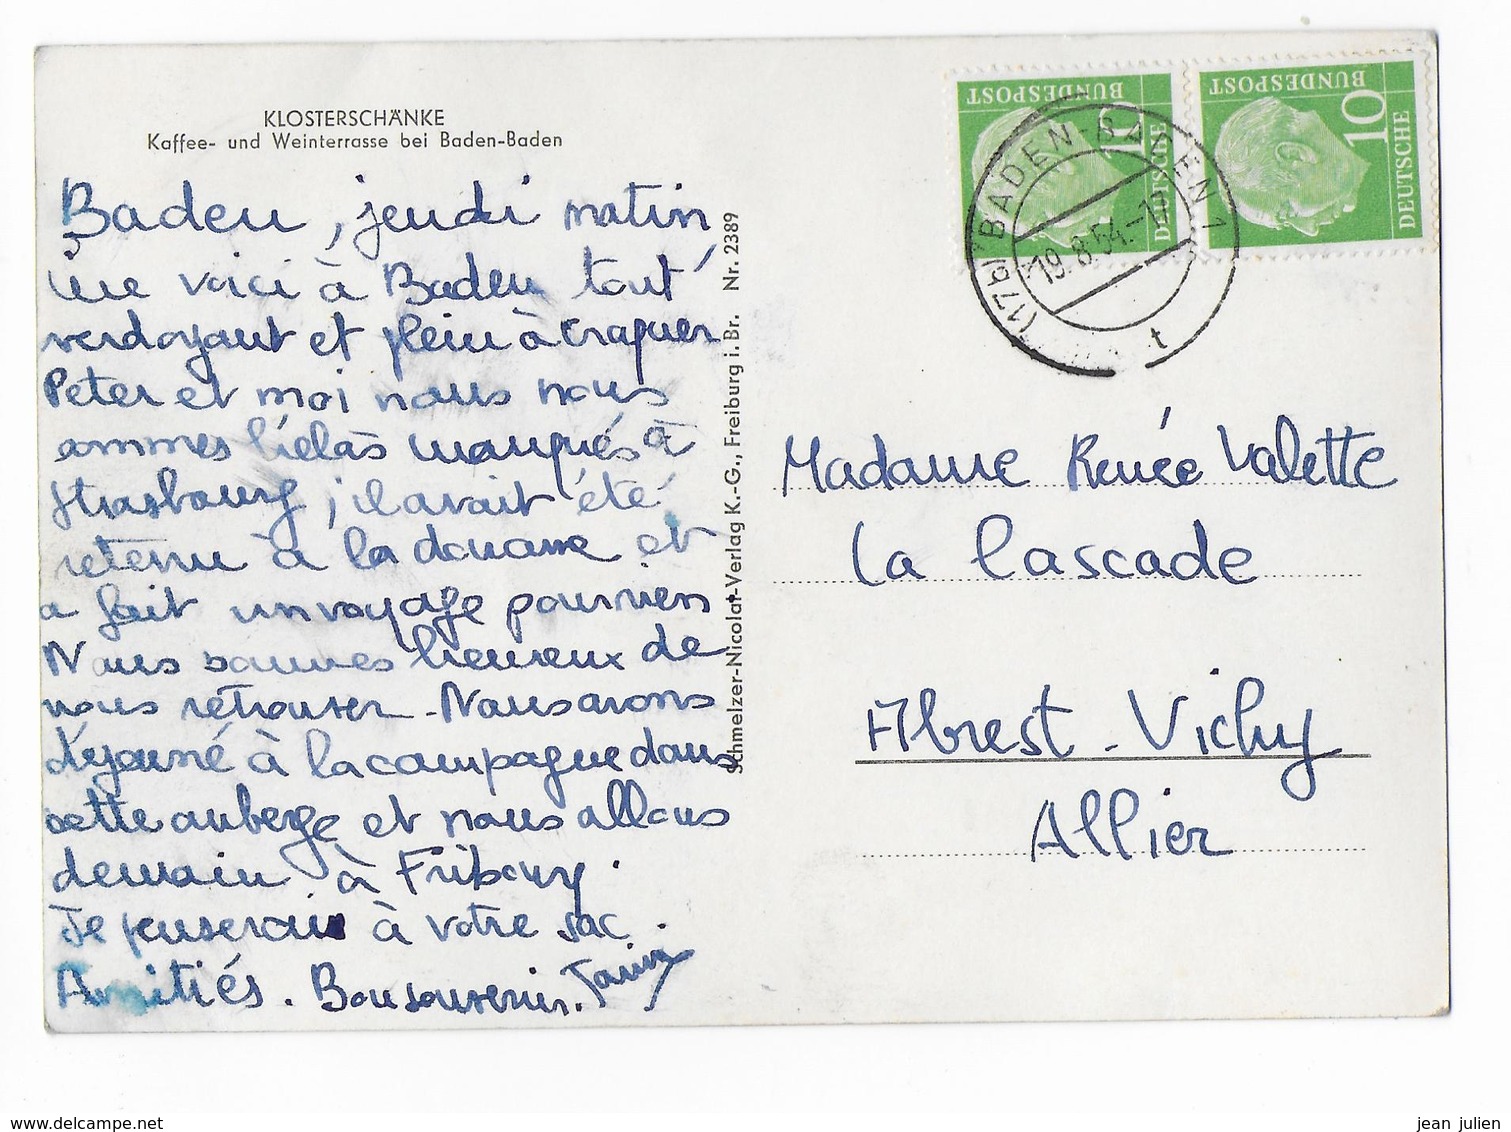 KLOSTERSCHÄNKE
Kaffee- und Weinterrasse bei Baden-Baden
Baden, jeudi matin
Me voici à Baden tout
verdoyant et plein à craquer
Peter et moi nous nous
sommes hélas manqués à
Strasbourg, il avait été
retenu à la douane et
a fait un voyage pour rien
Nous sommes heureux de
nous retrouver. Nous avons
déjeuné à la campagne dans
cette auberge et nous allons
demain à Fribourg.
Je penserai à votre sac.
Amitiés. Bon souvenir.
Schmelzer-Nicolat-Verlag K.-G., Freiburg i. Br. Nr. 2389
DEUTSCHE BUNDESPOST 10
DEUTSCHE BUNDESPOST 10
(17b) BADEN-BADEN 1
19.8.54.-17
t
Madame Renée Valette
La Cascade
Abrest - Vichy
Allier
jean julien